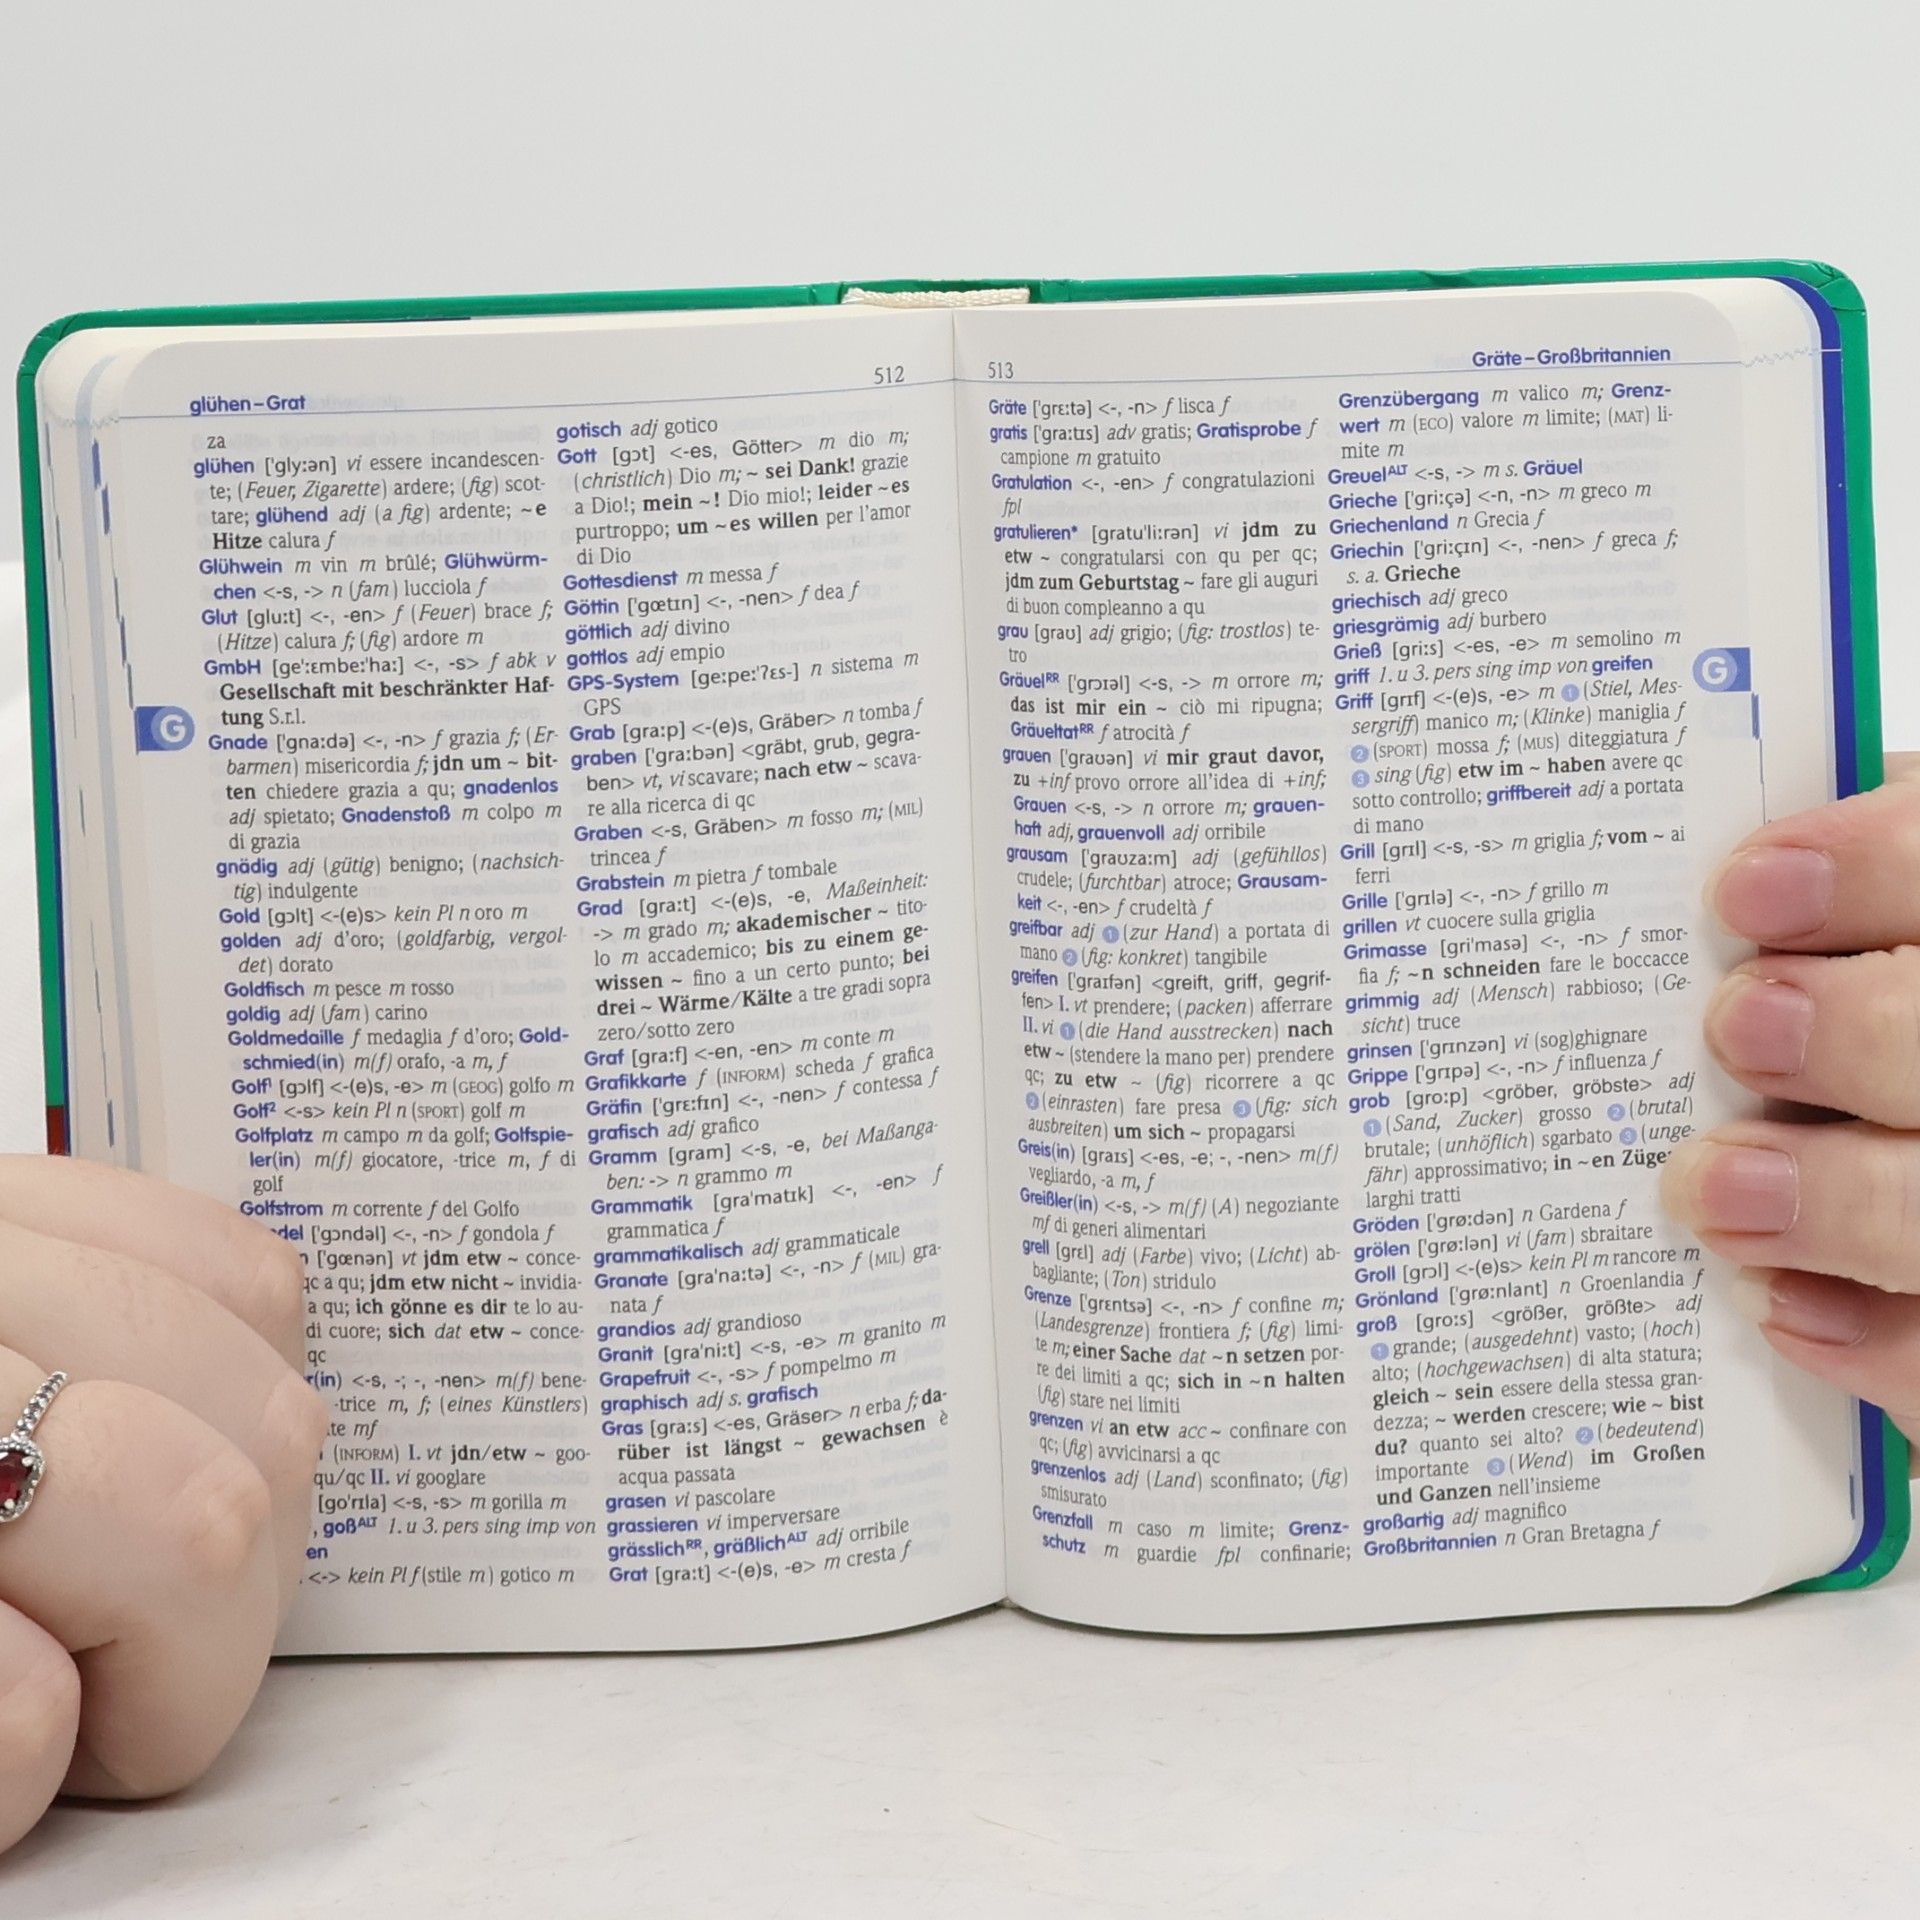 glühen – Grat
512
za
glühen ['gly:ən] vi essere incandescen-
te; (Feuer, Zigarette) ardere; (fig) scot-
tare; glühend adj (a fig) ardente; ~e
Hitze calura f
Glühwein m vin m brûlé; Glühwürm-
chen <-s, -> n (fam) lucciola f
Glut [glu:t] <-, -en> f (Feuer) brace f;
(Hitze) calura f; (fig) ardore m
GmbH [ge':ɛmbe:'ha:] <-, -s> f abk v
Gesellschaft mit beschränkter Haf-
tung S.r.l.
G
Gnade ['gna:də] <-, -n> f grazia f; (Er-
barmen) misericordia f; jdn um ~ bit-
ten chiedere grazia a qu; gnadenlos
adj spietato; Gnadenstoß m colpo m
di grazia
gnädig adj (gütig) benigno; (nachsich-
tig) indulgente
Gold [gɔlt] <-(e)s> kein Pl n oro m
golden adj d'oro; (goldfarbig, vergol-
det) dorato
Goldfisch m pesce m rosso
goldig adj (fam) carino
Goldmedaille f medaglia f d'oro; Gold-
schmied(in) m(f) orafo, -a m, f
Golf¹ [gɔlf] <-(e)s, -e> m (GEOG) golfo m
Golf² <-s> kein Pl n (SPORT) golf m
Golfplatz m campo m da golf; Golfspie-
ler(in) m(f) giocatore, -trice m, f di
golf
Golfstrom m corrente f del Golfo
del ['gɔndəl] <-, -n> f gondola f
n ['gœnən] vt jdm etw ~ conce-
qc a qu; jdm etw nicht ~ invidia-
a qu; ich gönne es dir te lo au-
di cuore; sich dat etw ~ conce-
qc
r(in) <-s, -; -, -nen> m(f) bene-
-trice m, f; (eines Künstlers)
te mf
(INFORM) I. vt jdn/etw ~ goo-
qu/qc II. vi googlare
[go'rɪla] <-s, -s> m gorilla m
, goßALT 1. u 3. pers sing imp von
en
<-> kein Pl f (stile m) gotico m
gotisch adj gotico
Gott [gɔt] <-es, Götter> m dio m;
(christlich) Dio m; ~ sei Dank! grazie
a Dio!; mein ~! Dio mio!; leider ~es
purtroppo; um ~es willen per l'amor
di Dio
Gottesdienst m messa f
Göttin ['gœtɪn] <-, -nen> f dea f
göttlich adj divino
gottlos adj empio
GPS-System [ge:pe:'ʔɛs-] n sistema m
GPS
Grab [gra:p] <-(e)s, Gräber> n tomba f
graben ['gra:bən] <gräbt, grub, gegra-
ben> vt, vi scavare; nach etw ~ scava-
re alla ricerca di qc
Graben <-s, Gräben> m fosso m; (MIL)
trincea f
Grabstein m pietra f tombale
Grad [gra:t] <-(e)s, -e, Maßeinheit:
-> m grado m; akademischer ~ tito-
lo m accademico; bis zu einem ge-
wissen ~ fino a un certo punto; bei
drei ~ Wärme/Kälte a tre gradi sopra
zero/sotto zero
Graf [gra:f] <-en, -en> m conte m
Grafikkarte f (INFORM) scheda f grafica
Gräfin ['grɛ:fɪn] <-, -nen> f contessa f
grafisch adj grafico
Gramm [gram] <-s, -e, bei Maßanga-
ben: -> n grammo m
Grammatik [gra'matɪk] <-, -en> f
grammatica f
grammatikalisch adj grammaticale
Granate [gra'na:tə] <-, -n> f (MIL) gra-
nata f
grandios adj grandioso
Granit [gra'ni:t] <-s, -e> m granito m
Grapefruit <-, -s> f pompelmo m
graphisch adj s. grafisch
Gras [gra:s] <-es, Gräser> n erba f; da-
rüber ist längst ~ gewachsen è
acqua passata
grasen vi pascolare
grassieren vi imperversare
grässlichRR, gräßlichALT adj orribile
Grat [gra:t] <-(e)s, -e> m cresta f
513
Gräte – Großbritannien
Gräte ['grɛ:tə] <-, -n> f lisca f
gratis ['gra:tɪs] adv gratis; Gratisprobe f
campione m gratuito
Gratulation <-, -en> f congratulazioni
fpl
gratulieren* [gratu'li:rən] vi jdm zu
etw ~ congratularsi con qu per qc;
jdm zum Geburtstag ~ fare gli auguri
di buon compleanno a qu
grau [graʊ] adj grigio; (fig: trostlos) te-
tro
GräuelRR ['grɔɪəl] <-s, -> m orrore m;
das ist mir ein ~ ciò mi ripugna;
GräueltatRR f atrocità f
grauen ['graʊən] vi mir graut davor,
zu +inf provo orrore all'idea di +inf;
Grauen <-s, -> n orrore m; grauen-
haft adj, grauenvoll adj orribile
grausam ['graʊza:m] adj (gefühllos)
crudele; (furchtbar) atroce; Grausam-
keit <-, -en> f crudeltà f
greifbar adj 1 (zur Hand) a portata di
mano 2 (fig: konkret) tangibile
greifen ['graɪfən] <greift, griff, gegrif-
fen> I. vt prendere; (packen) afferrare
II. vi 1 (die Hand ausstrecken) nach
etw ~ (stendere la mano per) prendere
qc; zu etw ~ (fig) ricorrere a qc
2 (einrasten) fare presa 3 (fig: sich
ausbreiten) um sich ~ propagarsi
Greis(in) [graɪs] <-es, -e; -, -nen> m(f)
vegliardo, -a m, f
Greißler(in) <-s, -> m(f) (A) negoziante
mf di generi alimentari
grell [grɛl] adj (Farbe) vivo; (Licht) ab-
bagliante; (Ton) stridulo
Grenze ['grɛntsə] <-, -n> f confine m;
(Landesgrenze) frontiera f; (fig) limi-
te m; einer Sache dat ~n setzen por-
re dei limiti a qc; sich in ~n halten
(fig) stare nei limiti
grenzen vi an etw acc ~ confinare con
qc; (fig) avvicinarsi a qc
grenzenlos adj (Land) sconfinato; (fig)
smisurato
Grenzfall m caso m limite; Grenz-
schutz m guardie fpl confinarie;
Grenzübergang m valico m; Grenz-
wert m (ECO) valore m limite; (MAT) li-
mite m
GreuelALT <-s, -> m s. Gräuel
Grieche ['gri:çə] <-n, -n> m greco m
Griechenland n Grecia f
Griechin ['gri:çɪn] <-, -nen> f greca f;
s. a. Grieche
griechisch adj greco
griesgrämig adj burbero
Grieß [gri:s] <-es, -e> m semolino m
griff 1. u 3. pers sing imp von greifen
G
Griff [grɪf] <-(e)s, -e> m 1 (Stiel, Mes-
sergriff) manico m; (Klinke) maniglia f
2 (SPORT) mossa f; (MUS) diteggiatura f
3 sing (fig) etw im ~ haben avere qc
sotto controllo; griffbereit adj a portata
di mano
Grill [grɪl] <-s, -s> m griglia f; vom ~ ai
ferri
Grille ['grɪlə] <-, -n> f grillo m
grillen vt cuocere sulla griglia
Grimasse [gri'masə] <-, -n> f smor-
fia f; ~n schneiden fare le boccacce
grimmig adj (Mensch) rabbioso; (Ge-
sicht) truce
grinsen ['grɪnzən] vi (sog)ghignare
Grippe ['grɪpə] <-, -n> f influenza f
grob [gro:p] <gröber, gröbste> adj
1 (Sand, Zucker) grosso 2 (brutal)
brutale; (unhöflich) sgarbato 3 (unge-
fähr) approssimativo; in ~en Züge
larghi tratti
Gröden ['grø:dən] n Gardena f
grölen ['grø:lən] vi (fam) sbraitare
Groll [grɔl] <-(e)s> kein Pl m rancore m
Grönland ['grø:nlant] n Groenlandia f
groß [gro:s] <größer, größte> adj
1 grande; (ausgedehnt) vasto; (hoch)
alto; (hochgewachsen) di alta statura;
gleich ~ sein essere della stessa gran-
dezza; ~ werden crescere; wie ~ bist
du? quanto sei alto? 2 (bedeutend)
importante 3 (Wend) im Großen
und Ganzen nell'insieme
großartig adj magnifico
Großbritannien n Gran Bretagna f